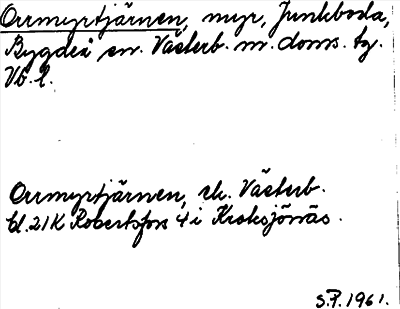 Orrmyrtjärnen, myr, Junkboda,
Bygdeå sn. Västerb. m. doms. tg.
Vb. l.
Orrmyrtjärnen, ek. Västerb.
bl. 21K Robertsfors 4 i Kroksjönäs.
S.F. 1961.